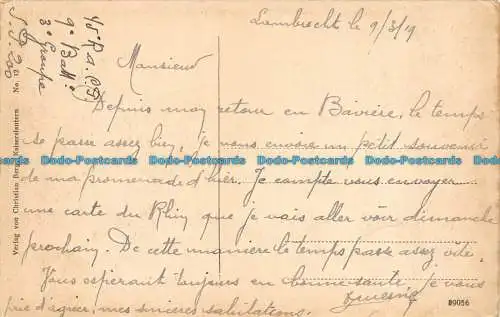 Lambrecht le 9/3/19
45e R.a.C.
9e Batt.
3e Groupe
S.P. 200
Monsieur
Depuis mon retour en Bavière, le temps
se passe assez bien, je vous envoie un petit souvenir
de ma promenade d'hier. Je compte vous envoyer
une carte du Rhin que je vais aller voir dimanche
prochain. De cette manière le temps passe assez vite.
Vous esperant toujours en bonne santé, je vous
prie d'agréer, mes sincères salutations.
Verlag von Christian Berg, Kaiserslautern No. 12
89056
Dodo-Postcards Dodo-Postcards Dodo-Postcards Dodo-Postcards
Dodo-Postcards Dodo-Postcards Dodo-Postcards Dodo-Postcards